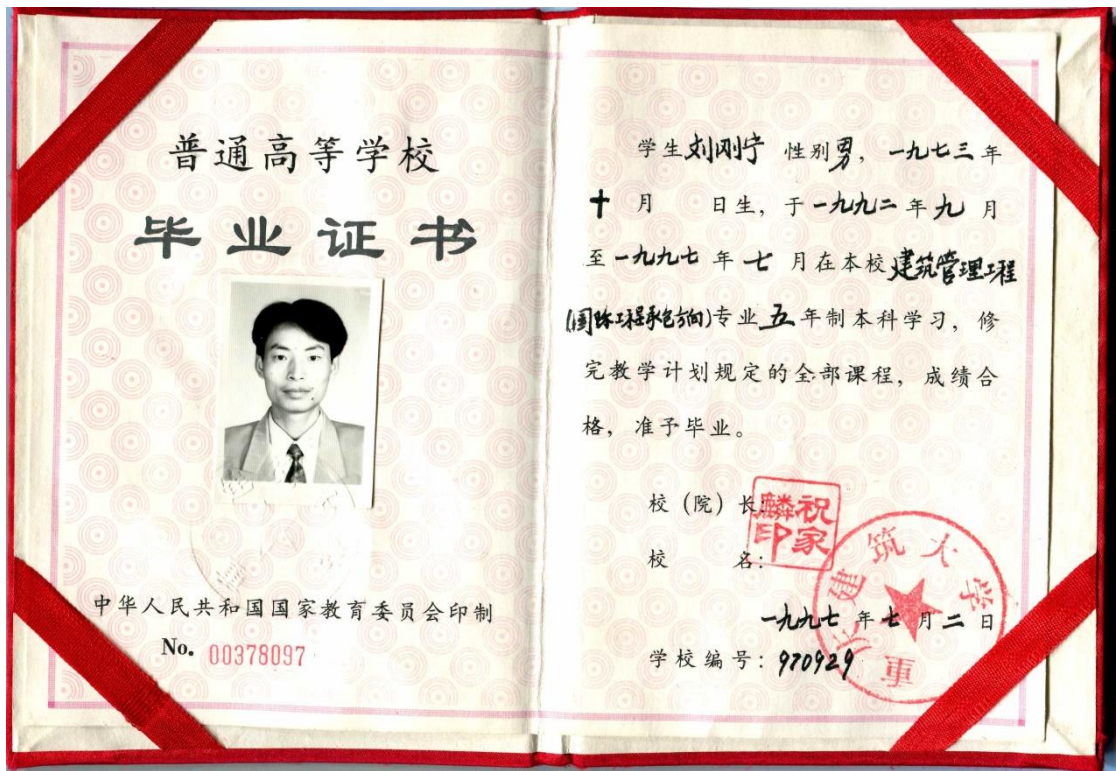 普通高等学校
毕业证书
中华人民共和国国家教育委员会印制
No. 00378097
学生刘刚宁 性别男，一九七三年
十月 日生，于一九九二年九月
至一九九七年七月在本校建筑管理工程
(国际工程承包方向)专业五年制本科学习，修
完教学计划规定的全部课程，成绩合
格，准予毕业。
校（院）长：
祝家麟印
校 名：
重庆建筑大学
一九九七年七月二日
学校编号：970929